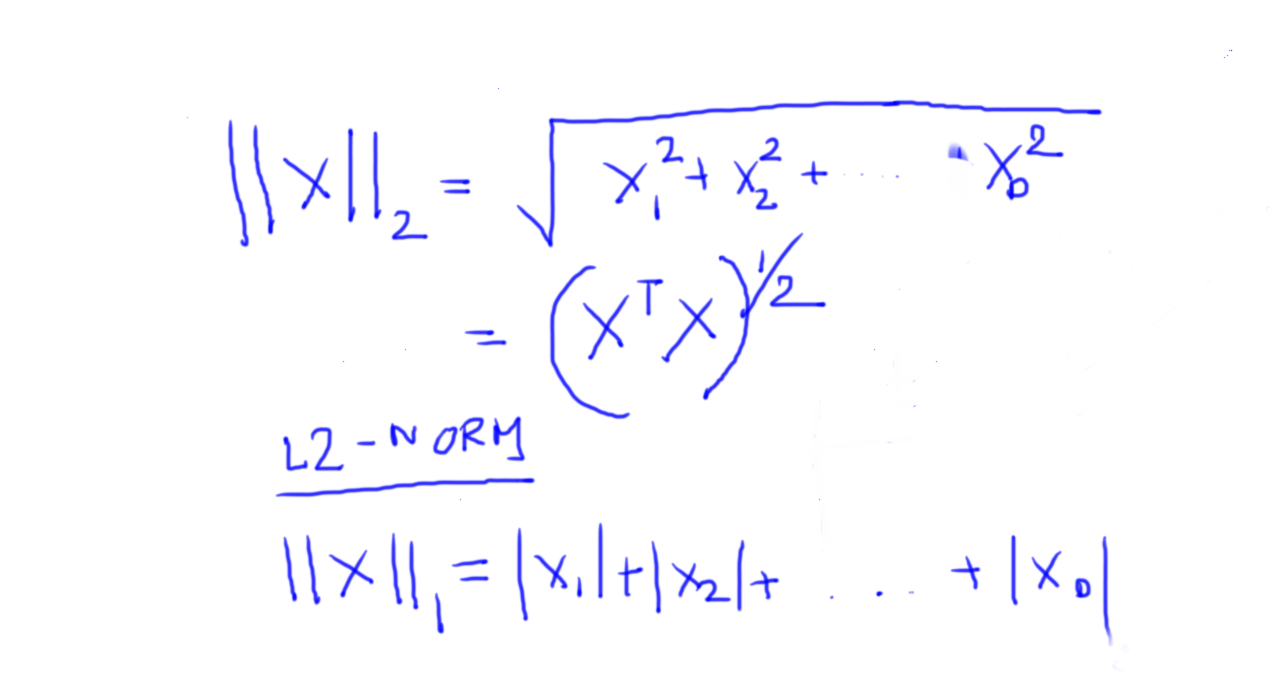 ||X||₂ = √(X₁² + X₂² + ..... X_D²)
= (XᵀX)^1/2
L2-NORM
||X||₁ = |X₁| + |X₂| + .... + |X_D|